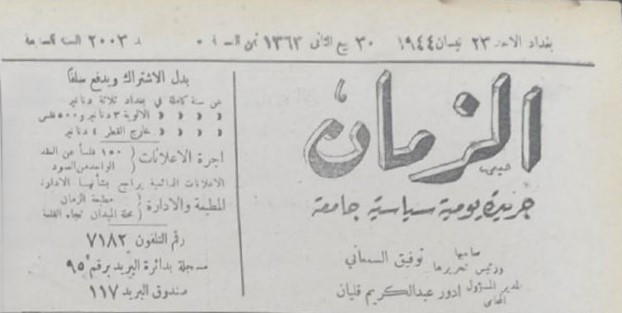 بغداد الاحد ٢٣ نيسان ١٩٤٤ ٣٠ ربيع الثاني ١٣٦٣ ٢٠٠٣ السنة السابعة
الزمان
جريدة يومية سياسية جامعة
صاحبها ورئيس تحريرها توفيق السمعاني
المدير المسؤول المحامي ادور عبدالكريم قليان
بدل الاشتراك ويدفع سلفا
عن سنة كاملة في بغداد ثلاثة دنانير
» » » » الالوية ٣ دنانير و ٥٠٠ فلس
» » » » خارج القطر ٤ دنانير
اجرة الاعلانات ( ١٥٠ فلساً عن العقد الواحد من العمود
الاعلانات الدائمية يراجع بشأنها الادارة
المطبعة والادارة ( مطبعة الزمان محلة الميدان تجاه القلعة
رقم التلفون ٧١٨٢
مسجلة بدائرة البريد برقم ٩٥
صندوق البريد ١١٧